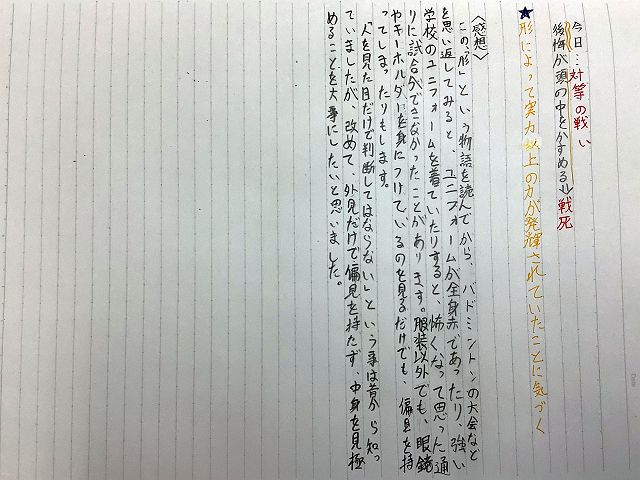 今日…対等の戦い
後悔が頭の中をかすめる⇒戦死
★形によって実力以上の力が発揮されていたことに気づく
〈感想〉
この「形」という物語を読んでから、バドミントンの大会など
を思い返してみると、ユニフォームが全身赤であったり、強い
学校のユニフォームを着ていたりすると、怖くなって思った通
りに試合ができなかったことがあります。服装以外でも、眼鏡
やキーホルダーを身につけているのを見るだけでも、偏見を持
ってしまったりもします。
「人を見た目だけで判断してはならない」という事は昔から知っ
ていましたが、改めて、外見だけで偏見を持たず、中身を見極
めることを大事にしたいと思いました。